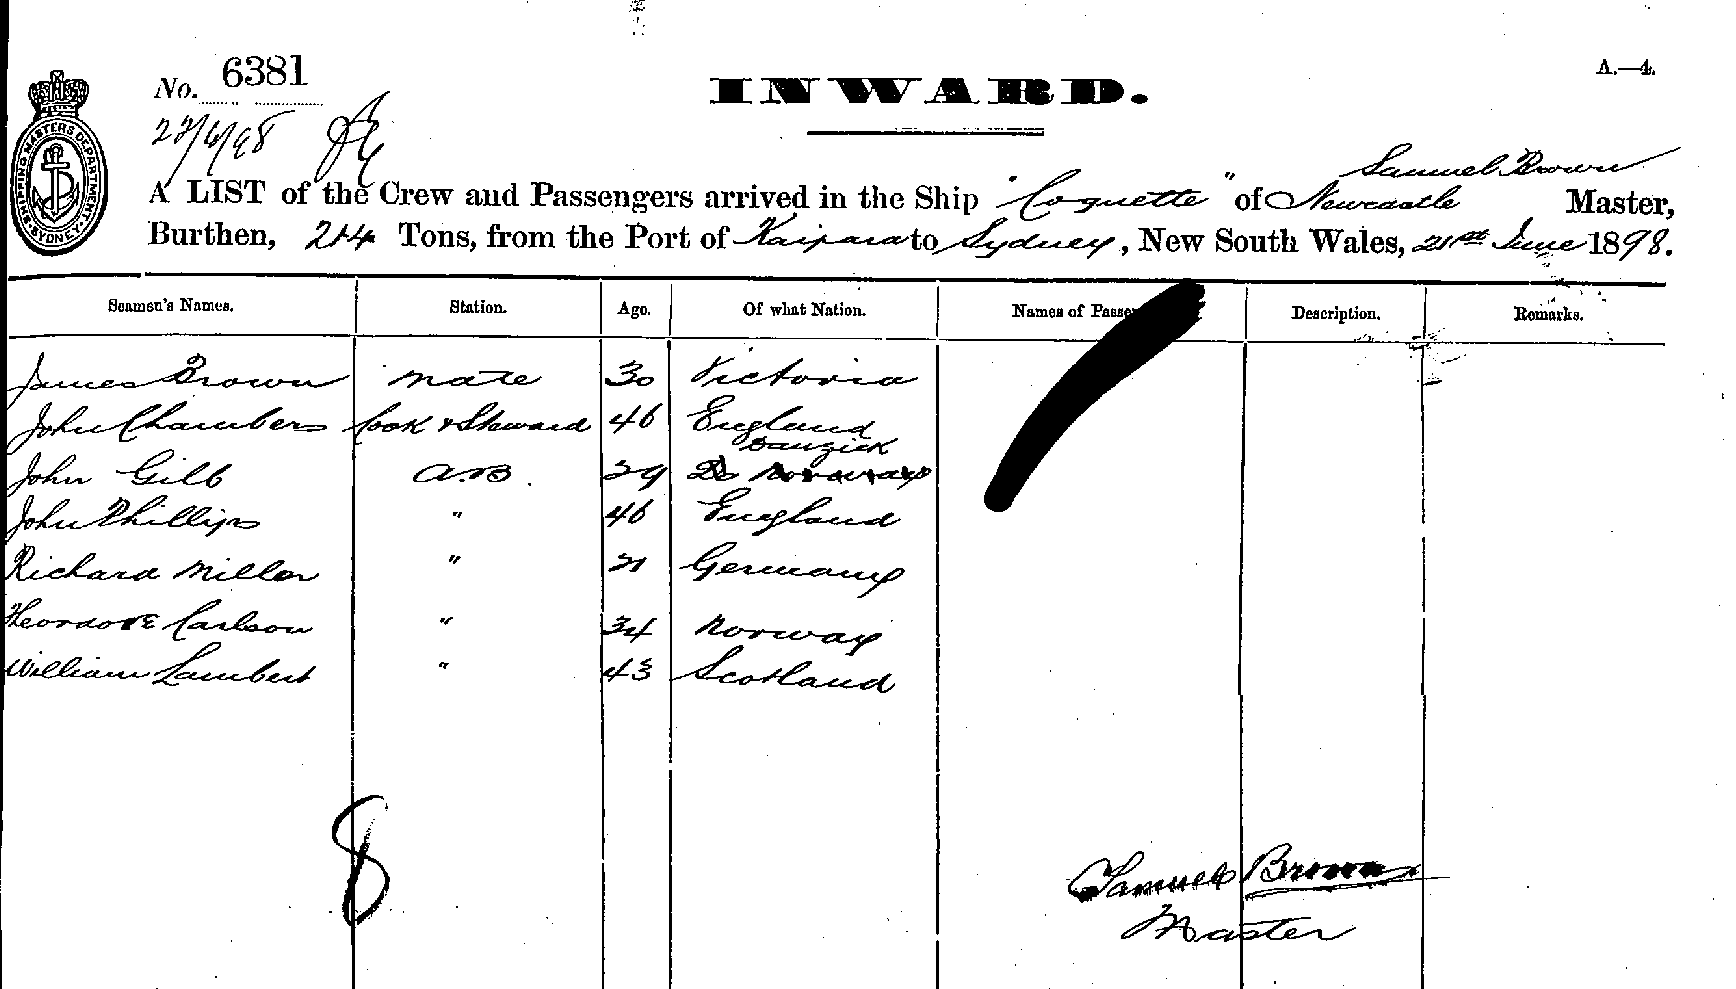 No. 6381
A.—4.
INWARD.
22/6/98
SHIPPING MASTERS DEPARTMENT SYDNEY
Samuel Brown
A LIST of the Crew and Passengers arrived in the Ship "Coquette" of Newcastle Master,
Burthen, 214 Tons, from the Port of Kaipara to Sydney, New South Wales, 21st June 1898.
Seamen's Names. Station. Age. Of what Nation. Names of Passe Description. Remarks.
James Brown Mate 30 Victoria
John Chambers Cook & Steward 46 England
Danzick
John Gilb A.B. 29 Do Norway
John Phillips " 46 England
Richard Miller " 21 Germany
Theordore Carlson " 34 Norway
William Lambert " 43 Scotland
8
Samuel Brown
Master